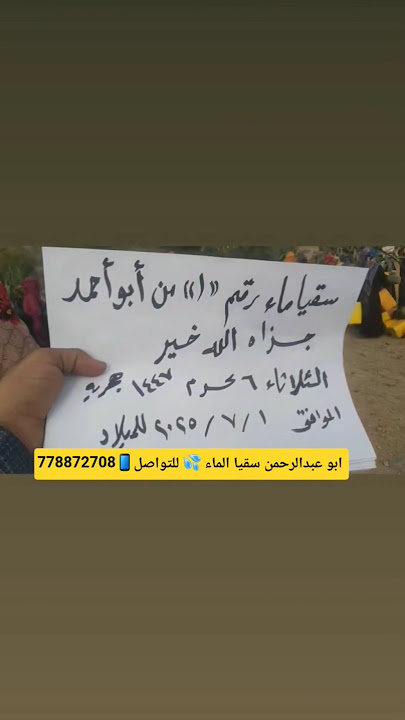 سقيا ماء رقم «١» من أبو أحمد
جزاه الله خير
الثلاثاء ٦ محرم ١٤٤٧ هجرية
الموافق ٢٠٢٥/٧/١ للميلاد
ابو عبدالرحمن سقيا الماء 💦 للتواصل📱778872708